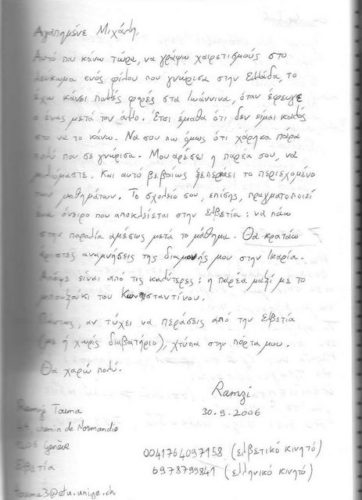 Αγαπημένε Μιχάλη,
Αυτό που κάνω τώρα, να γράφω χαιρετισμούς στο
λεύκωμα ενός φίλου που γνώρισα στην Ελλάδα, το
έχω κάνει πολλές φορές στα Ιωάννινα, όταν έφευγε
ο ένας μετά τον άλλο. Έτσι έμαθα ότι δεν είμαι καλός
στο να το κάνω. Να σου πω όμως ότι χάρηκα πάρα
πολύ που σε γνώρισα. Μου αρέσει η παρέα σου, να
μιλάμε. Και αυτό βεβαίως ξεπερνεί το περιεχόμενο
των μαθημάτων. Το σχολείο σου, επίσης, πραγματοποιεί
ένα όνειρο που αποκλείεται στην Ελβετία: να πάω
στην παραλία αμέσως μετά το μάθημα. Θα κρατάω
άριστες αναμνήσεις της διαμονής μου στην Ικαρία.
είναι από τις καλύτερες: η παρέα μαζί με το
μπουζούκι του Κωνσταντίνου.
Πάντως, αν τύχει να περάσεις από την Ελβετία
(με ή χωρίς διαβατήριο), χτύπα στην πόρτα μου.
Θα χαρώ πολύ.
Ramzi
30.9.2006
Ramzi
chemin de Normandie
1206 Genève
Ελβετία
@etu.unige.ch
0041764097158 (ελβετικό κινητό)
6978799841 (ελληνικό κινητό)